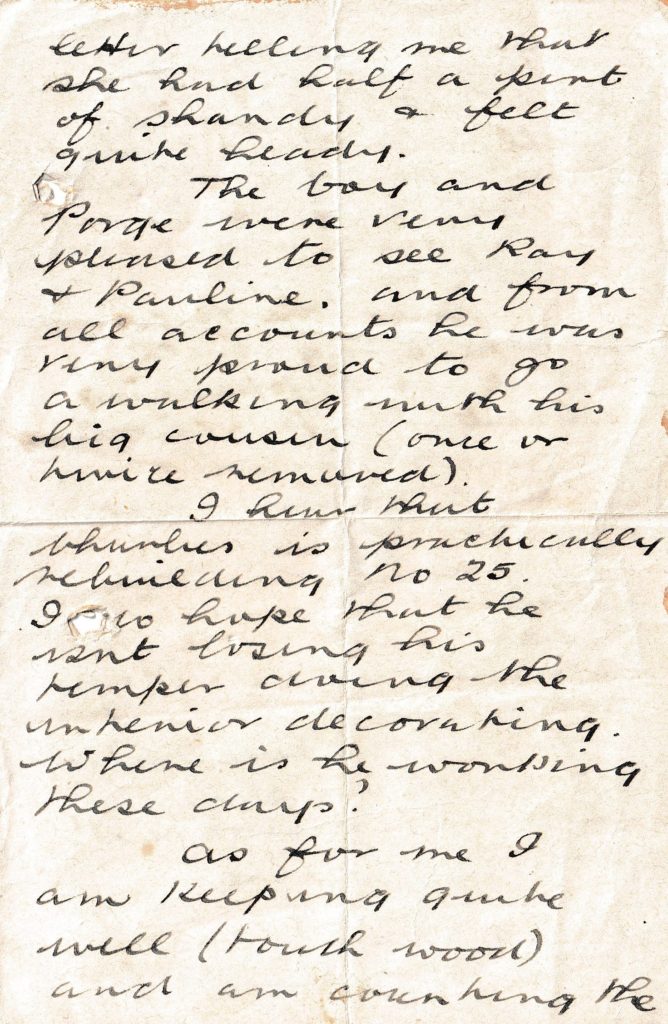 letter telling me that
she had half a pint
of shandy & felt
quite heady.
The boy and
Porge were very
pleased to see Ray
& Pauline. and from
all accounts he was
very proud to go
a walking with his
big cousin (once or
twice removed).
I hear that
Charles is practically
rebuilding No 25.
I do hope that he
isnt losing his
temper doing the
interior decorating.
Where is he working
these days?
As for me I
am keeping quite
well (touch wood)
and am counting the